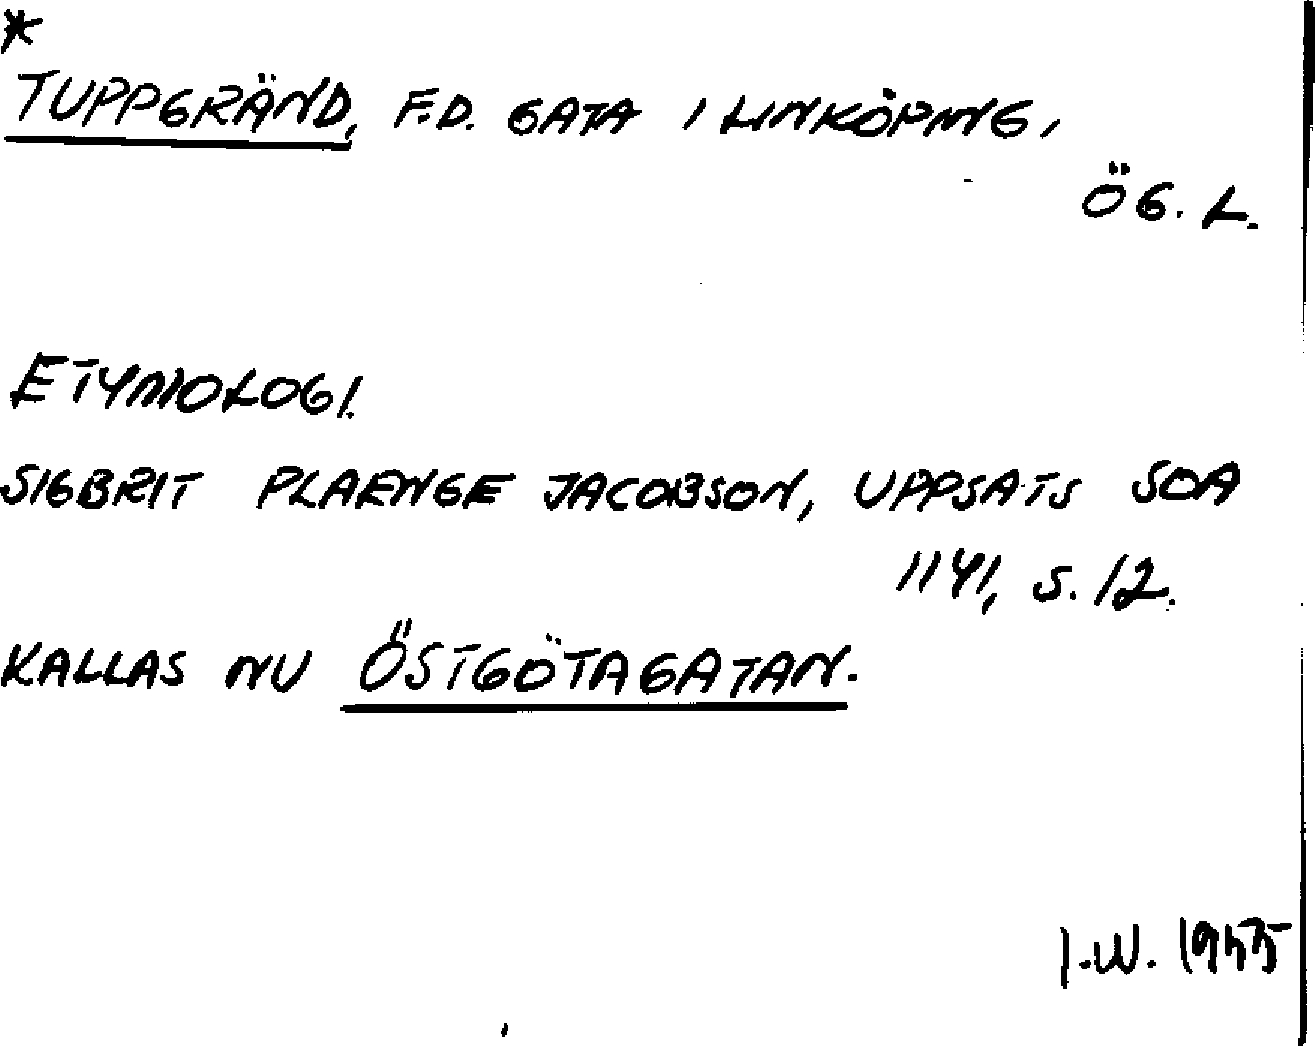 *
TUPPGRÄND, F.D. GATA I LINKÖPING,
ÖG. L.
ETYMOLOGI.
SIGBRIT PLAENGE JACOBSON, UPPSATS SOA
1141, S. 12.
KALLAS NU ÖSTGÖTAGATAN.
I.W.